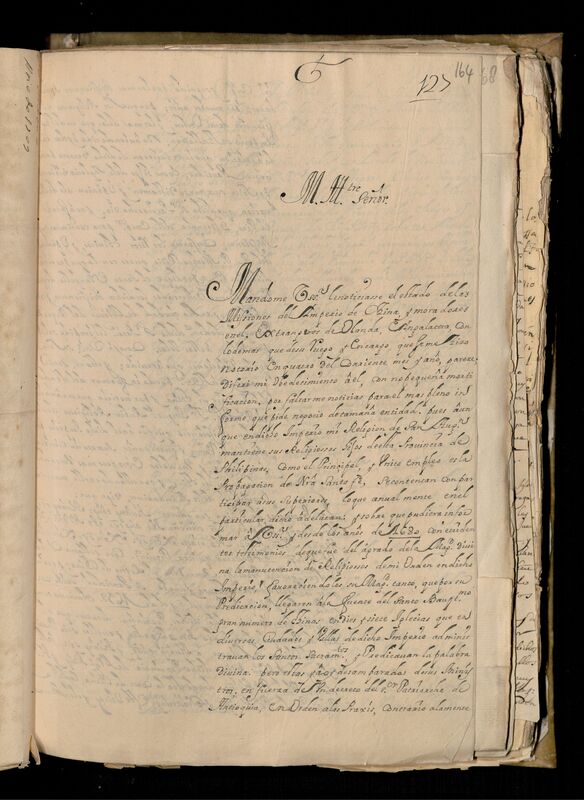 127
164
68
M. Il.tre Señor.
Mandome Vss.ª le noticiasse el estado de las
Missiones del Imperio de China, y moradores
en el, Extrangeros de Olanda, Inga con
lo demas que de su Ruego y Encargo que se me hizo
notorio En quatro del Corriente mes y año, parece
Diferi mi Obedecimiento à el, con no pequeña morti
ficacion, por faltarme noticias para el mas pleno in
forme que pide negocio de tamaña entidad; pues aun
que en dicho Imperio mi Religion de San Aug.n
mantiene sus Religiosos hijos de esta Provincia de
Philipinas, como el Principal, y Unico empleo es la
Propagacion de Nrã Santa fe, se contentan con par
ticipar a sus Superiores, lo que anualmente en el
particular dicho adelantan: y sobre que pudiera infor
mar à Vss.ª y desde los años de 1680 con eviden
tes testimonios, de que fue del agrado de la Mag.d Divi
na la manutencion de Religiosos de mi Orden en dicho
Imperio, favoreciendoles su Mag.d tanto, que por su
Predicacion, llegaron à la fuente del Santo Baup.mo
gran numero de Chinas en dies y siete Iglecias que en
diversas Ciudades y Villas de dicho Imperio adminis
travan los Santos Sacram.tos y Predicavan la palabra
Divina. pero estas desamparadas de sus Minis
tros, en fuerza de Un decreto del S.or Patriarcha de
Antioquia, en Orden a las Praxis, contrario a la mente